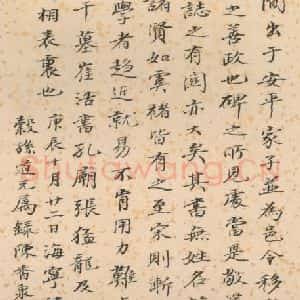 間出于安平家子並為邑令移
之善政也碑之所見處當是敬
誌之有關亦大矣其書無姓名
諸賢如虞褚皆有之至宋則斬
學者趨近就易不肯用力難
千墓崔浩書孔廟張猛龍及
相表裏也
庚辰 月廿二日海寧
穀孫道兄屬錄陳香泉